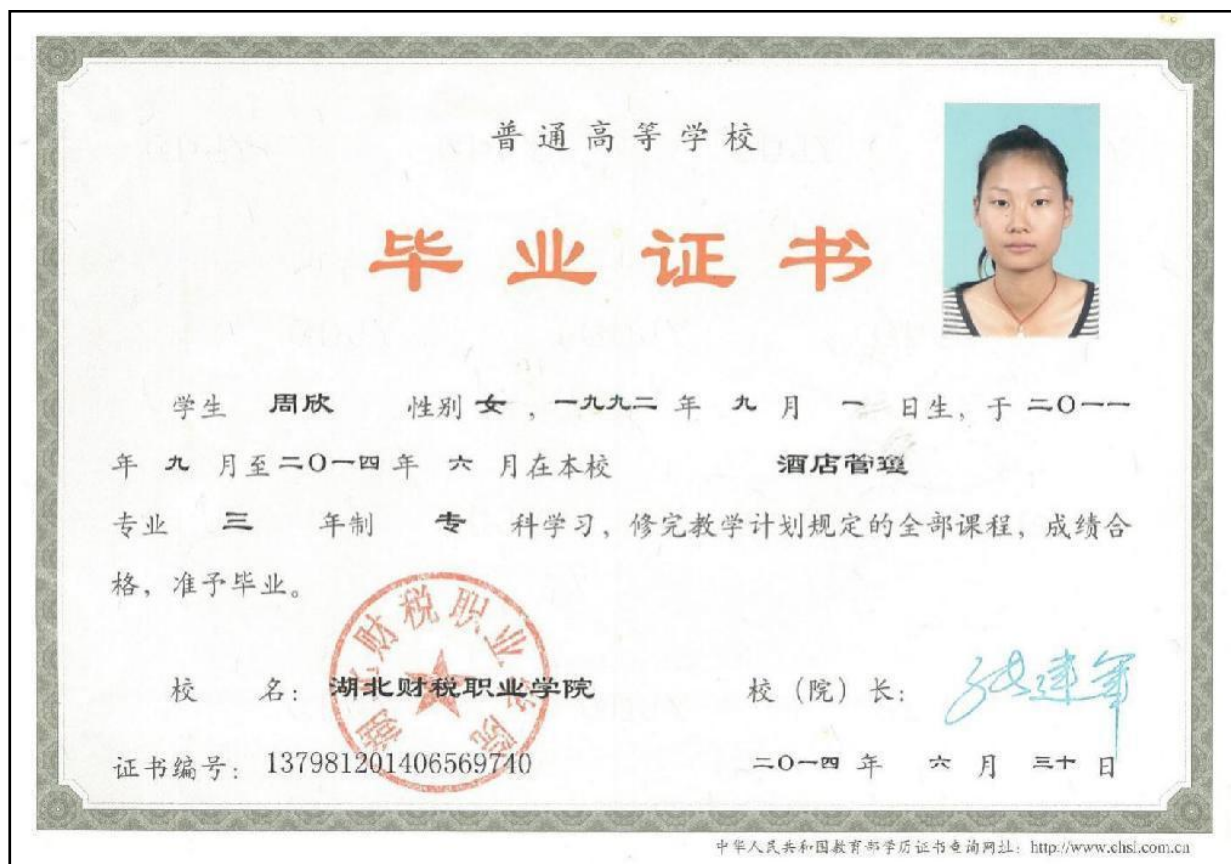 普通高等学校
毕业证书
学生 周欣 性别 女，一九九二 年 九 月 一 日生，于 二〇一一
年 九 月至二〇一四年 六 月在本校 酒店管理
专业 三 年制 专 科学习，修完教学计划规定的全部课程，成绩合
格，准予毕业。
校 名：湖北财税职业学院 校（院）长：
湖北财税职业学院
证书编号：137981201406569740 二〇一四 年 六 月 三十 日
中华人民共和国教育部学历证书查询网址：http://www.chsi.com.cn